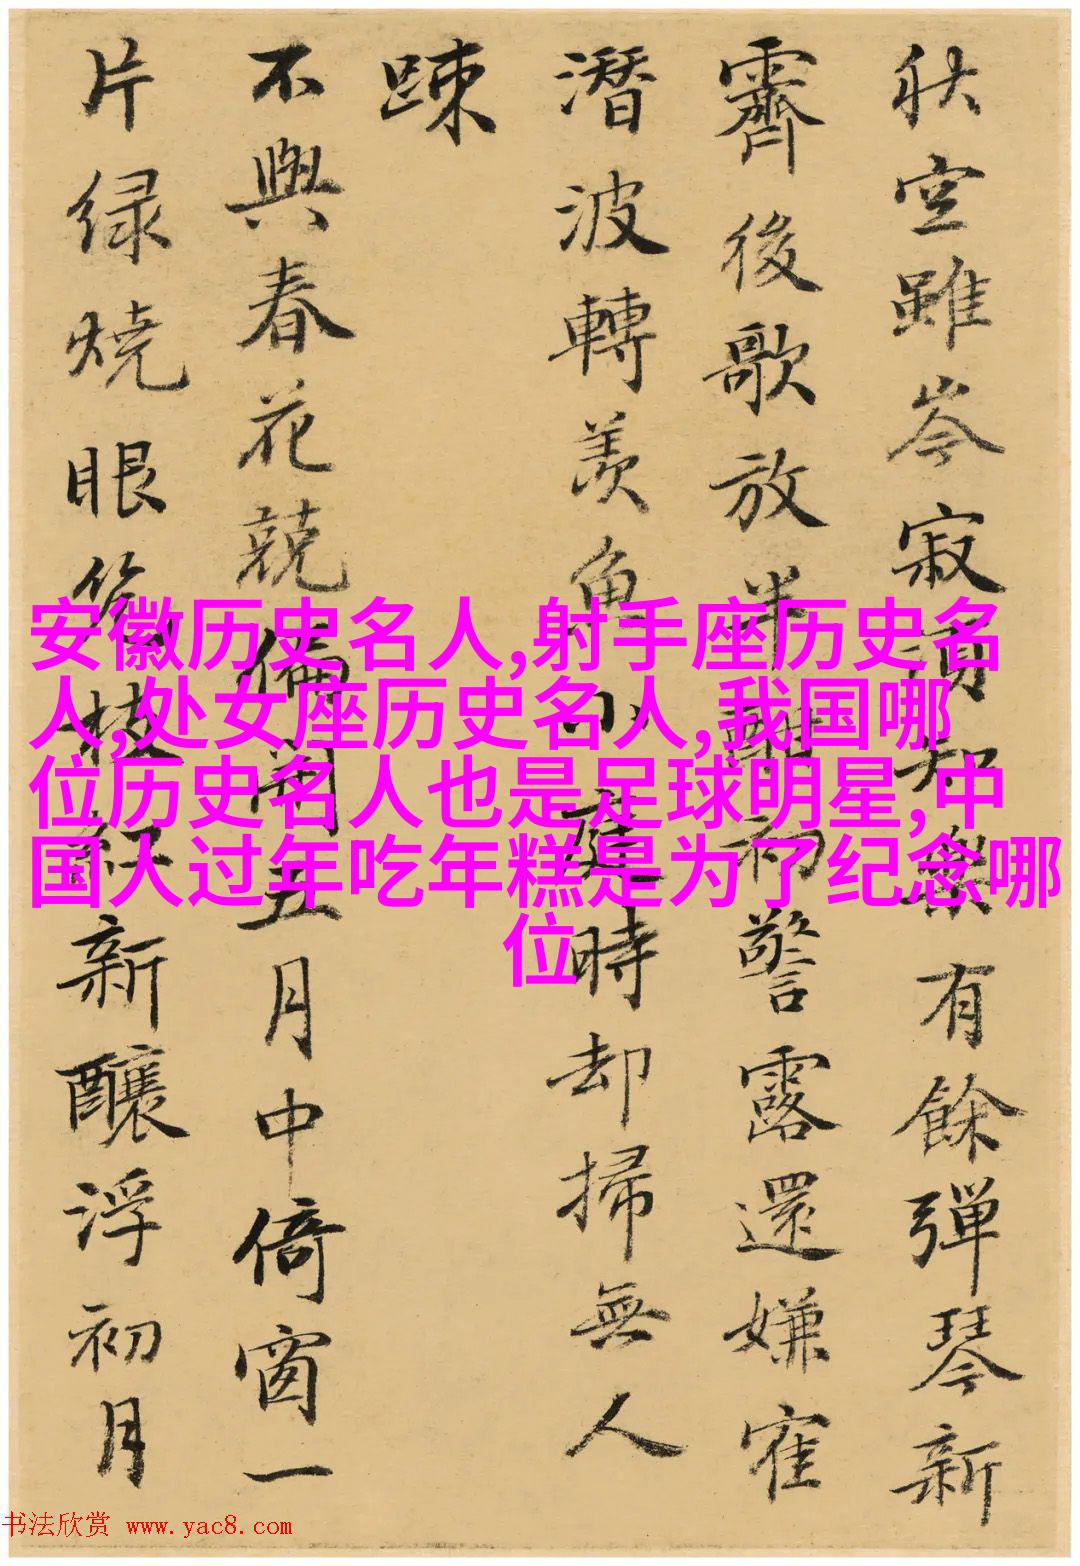 秋空雖岑寂須知樂有餘彈琴新
霽後歌放半酣初警露還嫌隺
潛波轉羨魚小庭時却掃無人
踈
不與春花競偏開五月中倚窗一
片绿燒眼枝紅新釀浮初月
安徽历史名人,射手座历史名
人,处女座历史名人,我国哪
位历史名人也是足球明星,中
国人过年吃年糕是为了纪念哪
位
书法欣赏 www.yac8.com